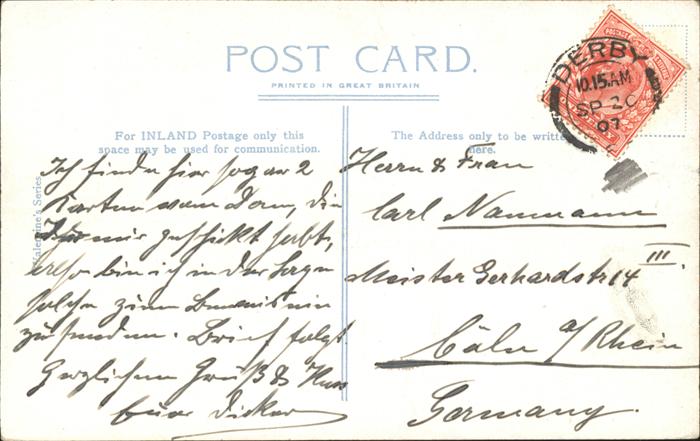 POST CARD.
PRINTED IN GREAT BRITAIN
For INLAND Postage only this
space may be used for communication.
The Address only to be written
here.
DERBY
10.15 AM
SP 20
07
Valentine's Series
Ich finde hier sogar 2
Karten vom Dom, die
Ihr mir geschickt habt,
also bin ich in der Lage
solche zum Beweis ein
zu senden. Brief folgt
Herzlichen Gruß & Kuss
Euer
Herrn & Frau
Carl Naumann
Meister Gerhardstr 14 III.
Cöln a/Rhein
Germany.